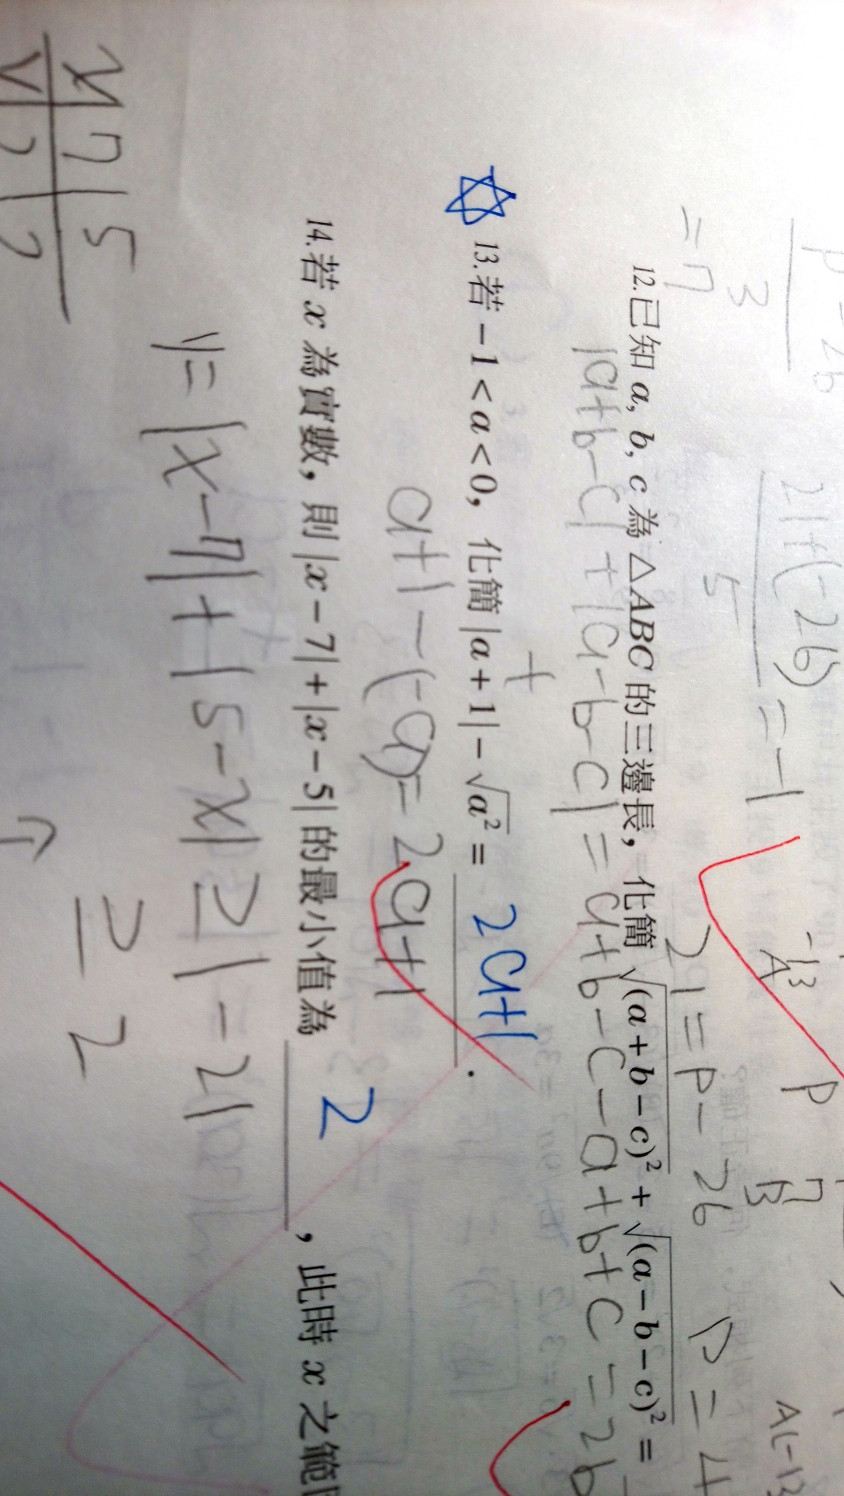 = 7
3
21+(-2b)
5
= -1
-13
A
P
7
B
21 = P - 2b
P = 4
12.已知 a, b, c 為 △ABC 的三邊長，化簡 √(a+b-c)² + √(a-b-c)² =
|a+b-c| + |a-b-c| = a+b-c-a+b+c = 2b
+
13.若 -1<a<0，化簡 |a+1| - √a² = 2a+1 .
a+1-(-a) = 2a+1
14.若 x 為實數，則 |x-7| + |x-5| 的最小值為 2 ，此時 x 之範
y = |x-7| + |5-x| ≥ |-2|
≥ 2
x 7 5
y 2 2